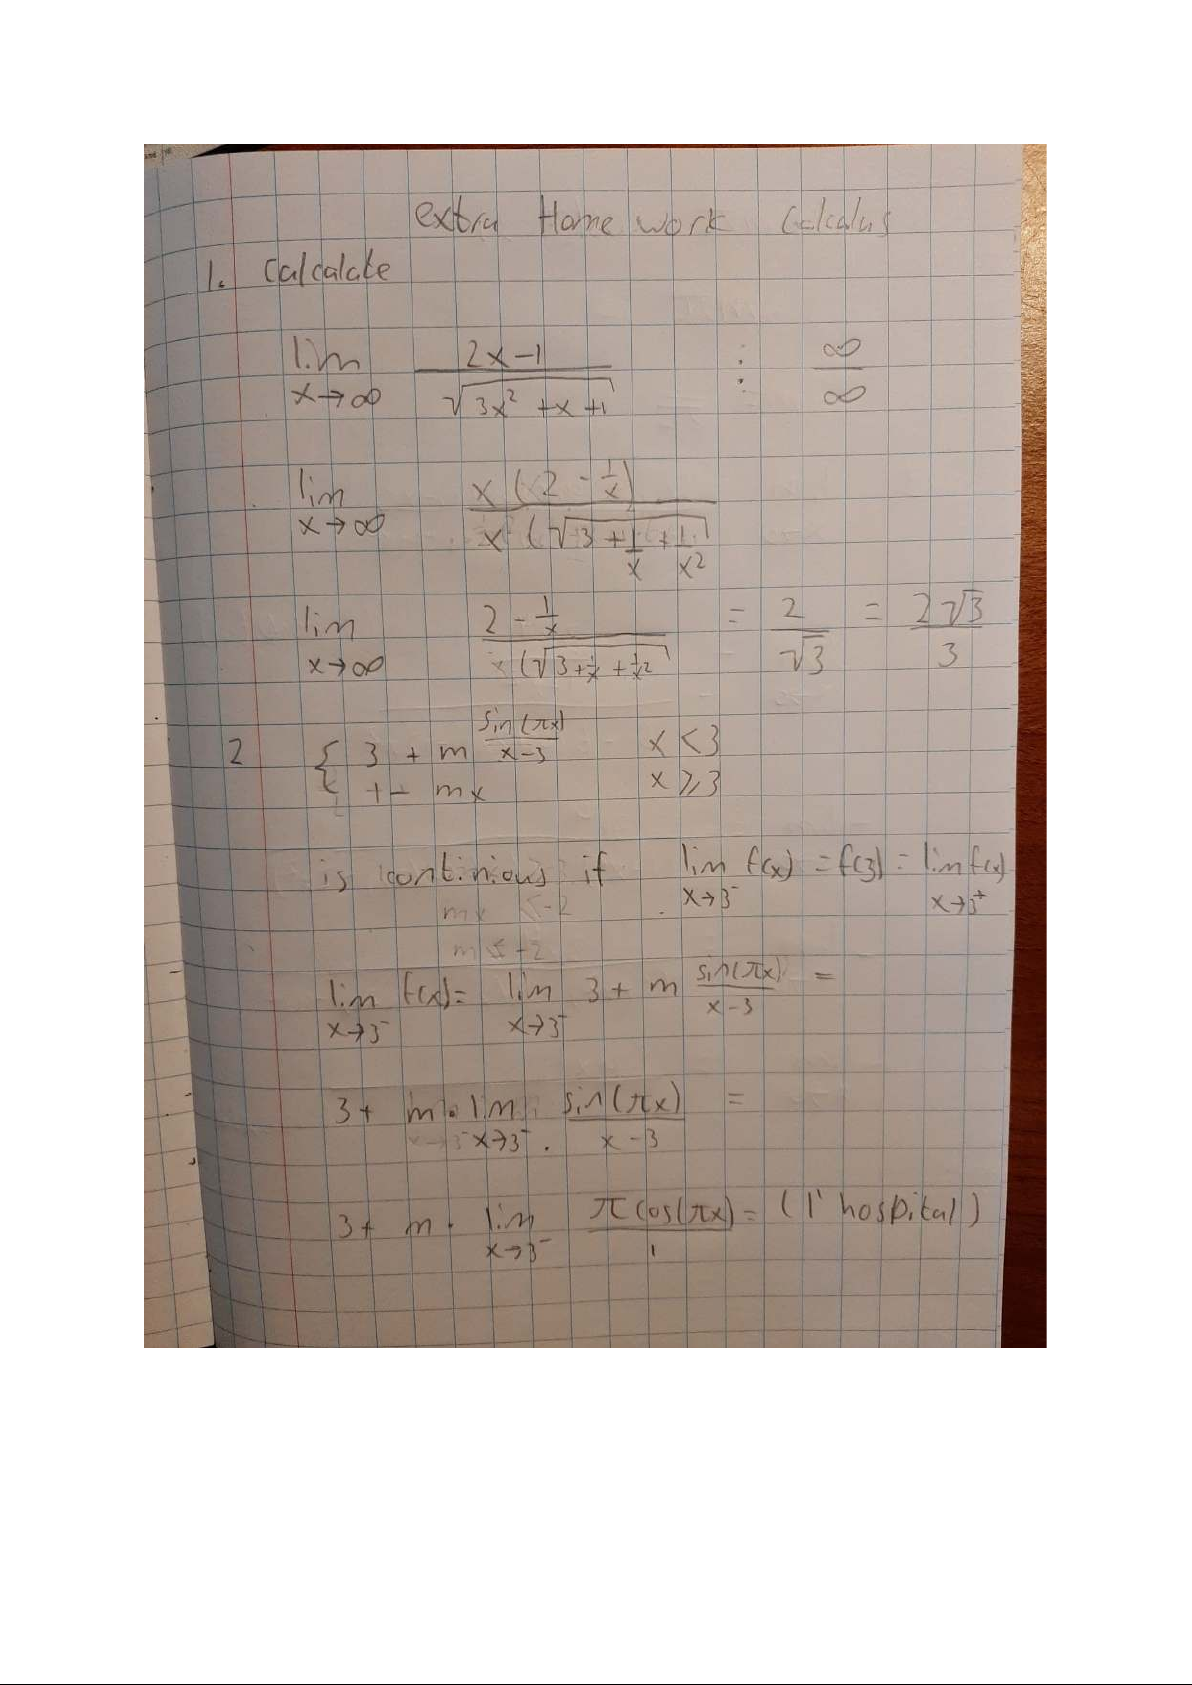 extra Home work Calculus
1. Calculate
lim x→∞ (2x-1)/(√(3x² +x +1)) : ∞/∞
lim x→∞ x(2 - 1/x) / x(√(3 + 1/x + 1/x²)
lim x→∞ (2 - 1/x) / (√(3 + 1/x + 1/x²) = 2/√3 = 2√3/3
2 { 3 + m sin(πx)/(x-3) x < 3
mx x ⩾ 3
is continious if lim x→3⁻ f(x) = f(3) = lim x→3⁺ f(x)
lim x→3⁻ f(x) = lim x→3⁻ 3 + m sin(πx)/(x-3) =
3 + m · lim x→3⁻ sin(πx)/(x-3) =
3 + m · lim x→3⁻ π cos(πx)/1 = (l'hospital)